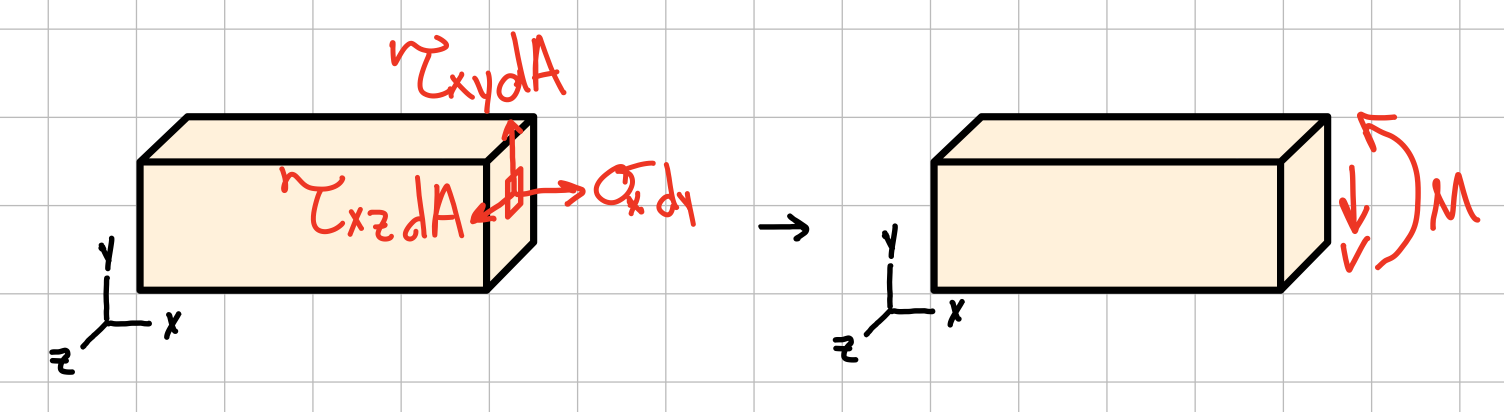 τxydA
τxzdA
σxdy
y
x
z
→
y
x
z
M
V